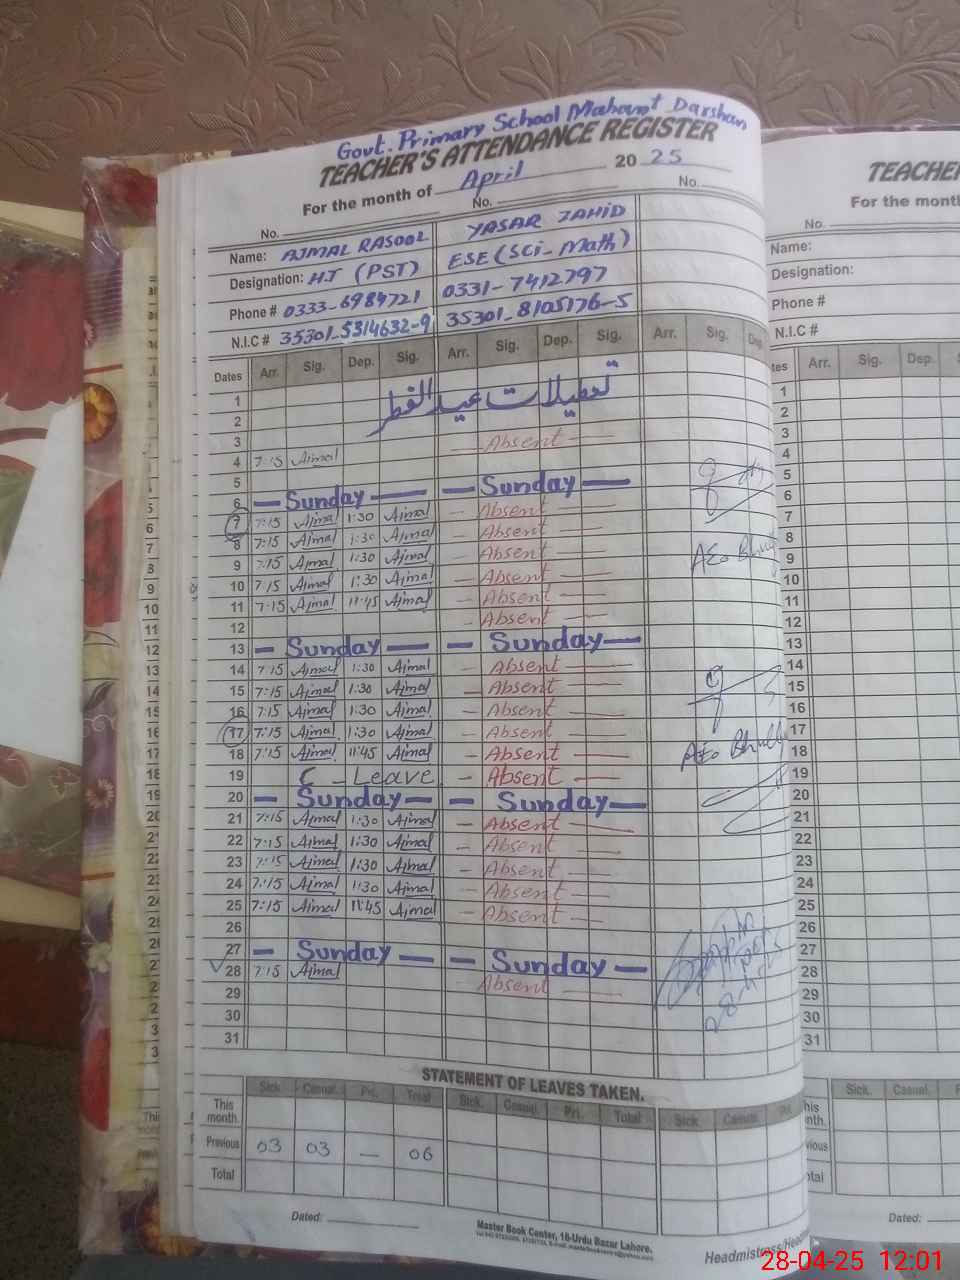 Govt. Primary School Mahant Darshan
TEACHER'S ATTENDANCE REGISTER
For the month of April 20 25
No. No. No.
Name: AJMAL RASOOL YASAR ZAHID
Designation: H.T (PST) ESE (Sci-Math)
Phone # 0333-6984721 0331-7412797
N.I.C # 35301-5314632-9 35301-8105176-5
Dates Arr. Sig. Dep. Sig. Arr. Sig. Dep. Sig. Arr. Sig. Dep.
1 تعطیلات عید الفطر
2
3 Absent
4 7:15 Ajmal
5
6 Sunday Sunday
7 7:15 Ajmal 1:30 Ajmal - Absent
8 7:15 Ajmal 1:30 Ajmal - Absent
9 7:15 Ajmal 1:30 Ajmal - Absent
10 7:15 Ajmal 1:30 Ajmal - Absent
11 7:15 Ajmal 11:45 Ajmal - Absent
12 - Absent
13 - Sunday - - Sunday -
14 7:15 Ajmal 1:30 Ajmal - Absent
15 7:15 Ajmal 1:30 Ajmal - Absent
16 7:15 Ajmal 1:30 Ajmal - Absent
17 7:15 Ajmal 1:30 Ajmal - Absent
18 7:15 Ajmal 11:45 Ajmal - Absent
19 C - Leave - Absent
20 - Sunday - - Sunday -
21 7:15 Ajmal 1:30 Ajmal - Absent
22 7:15 Ajmal 1:30 Ajmal - Absent
23 7:15 Ajmal 1:30 Ajmal - Absent
24 7:15 Ajmal 1:30 Ajmal - Absent
25 7:15 Ajmal 11:45 Ajmal - Absent
26
27 - Sunday - - Sunday -
28 7:15 Ajmal - Absent
29
30
31
AEo
AEo
STATEMENT OF LEAVES TAKEN.
Sick Casual. Pri. Total Sick. Casual. Pri. Total Sick Casual
This month.
Previous 03 03 — 06
Total
Dated:
Master Book Center, 16-Urdu Bazar Lahore.
TEACHER
For the month
No.
Name:
Designation:
Phone #
N.I.C #
Arr. Sig. Dep.
1
2
3
4
5
6
7
8
9
10
11
12
13
14
15
16
17
18
19
20
21
22
23
24
25
26
27
28
29
30
31
Sick. Casual.
Dated:
28-04-25 12:01